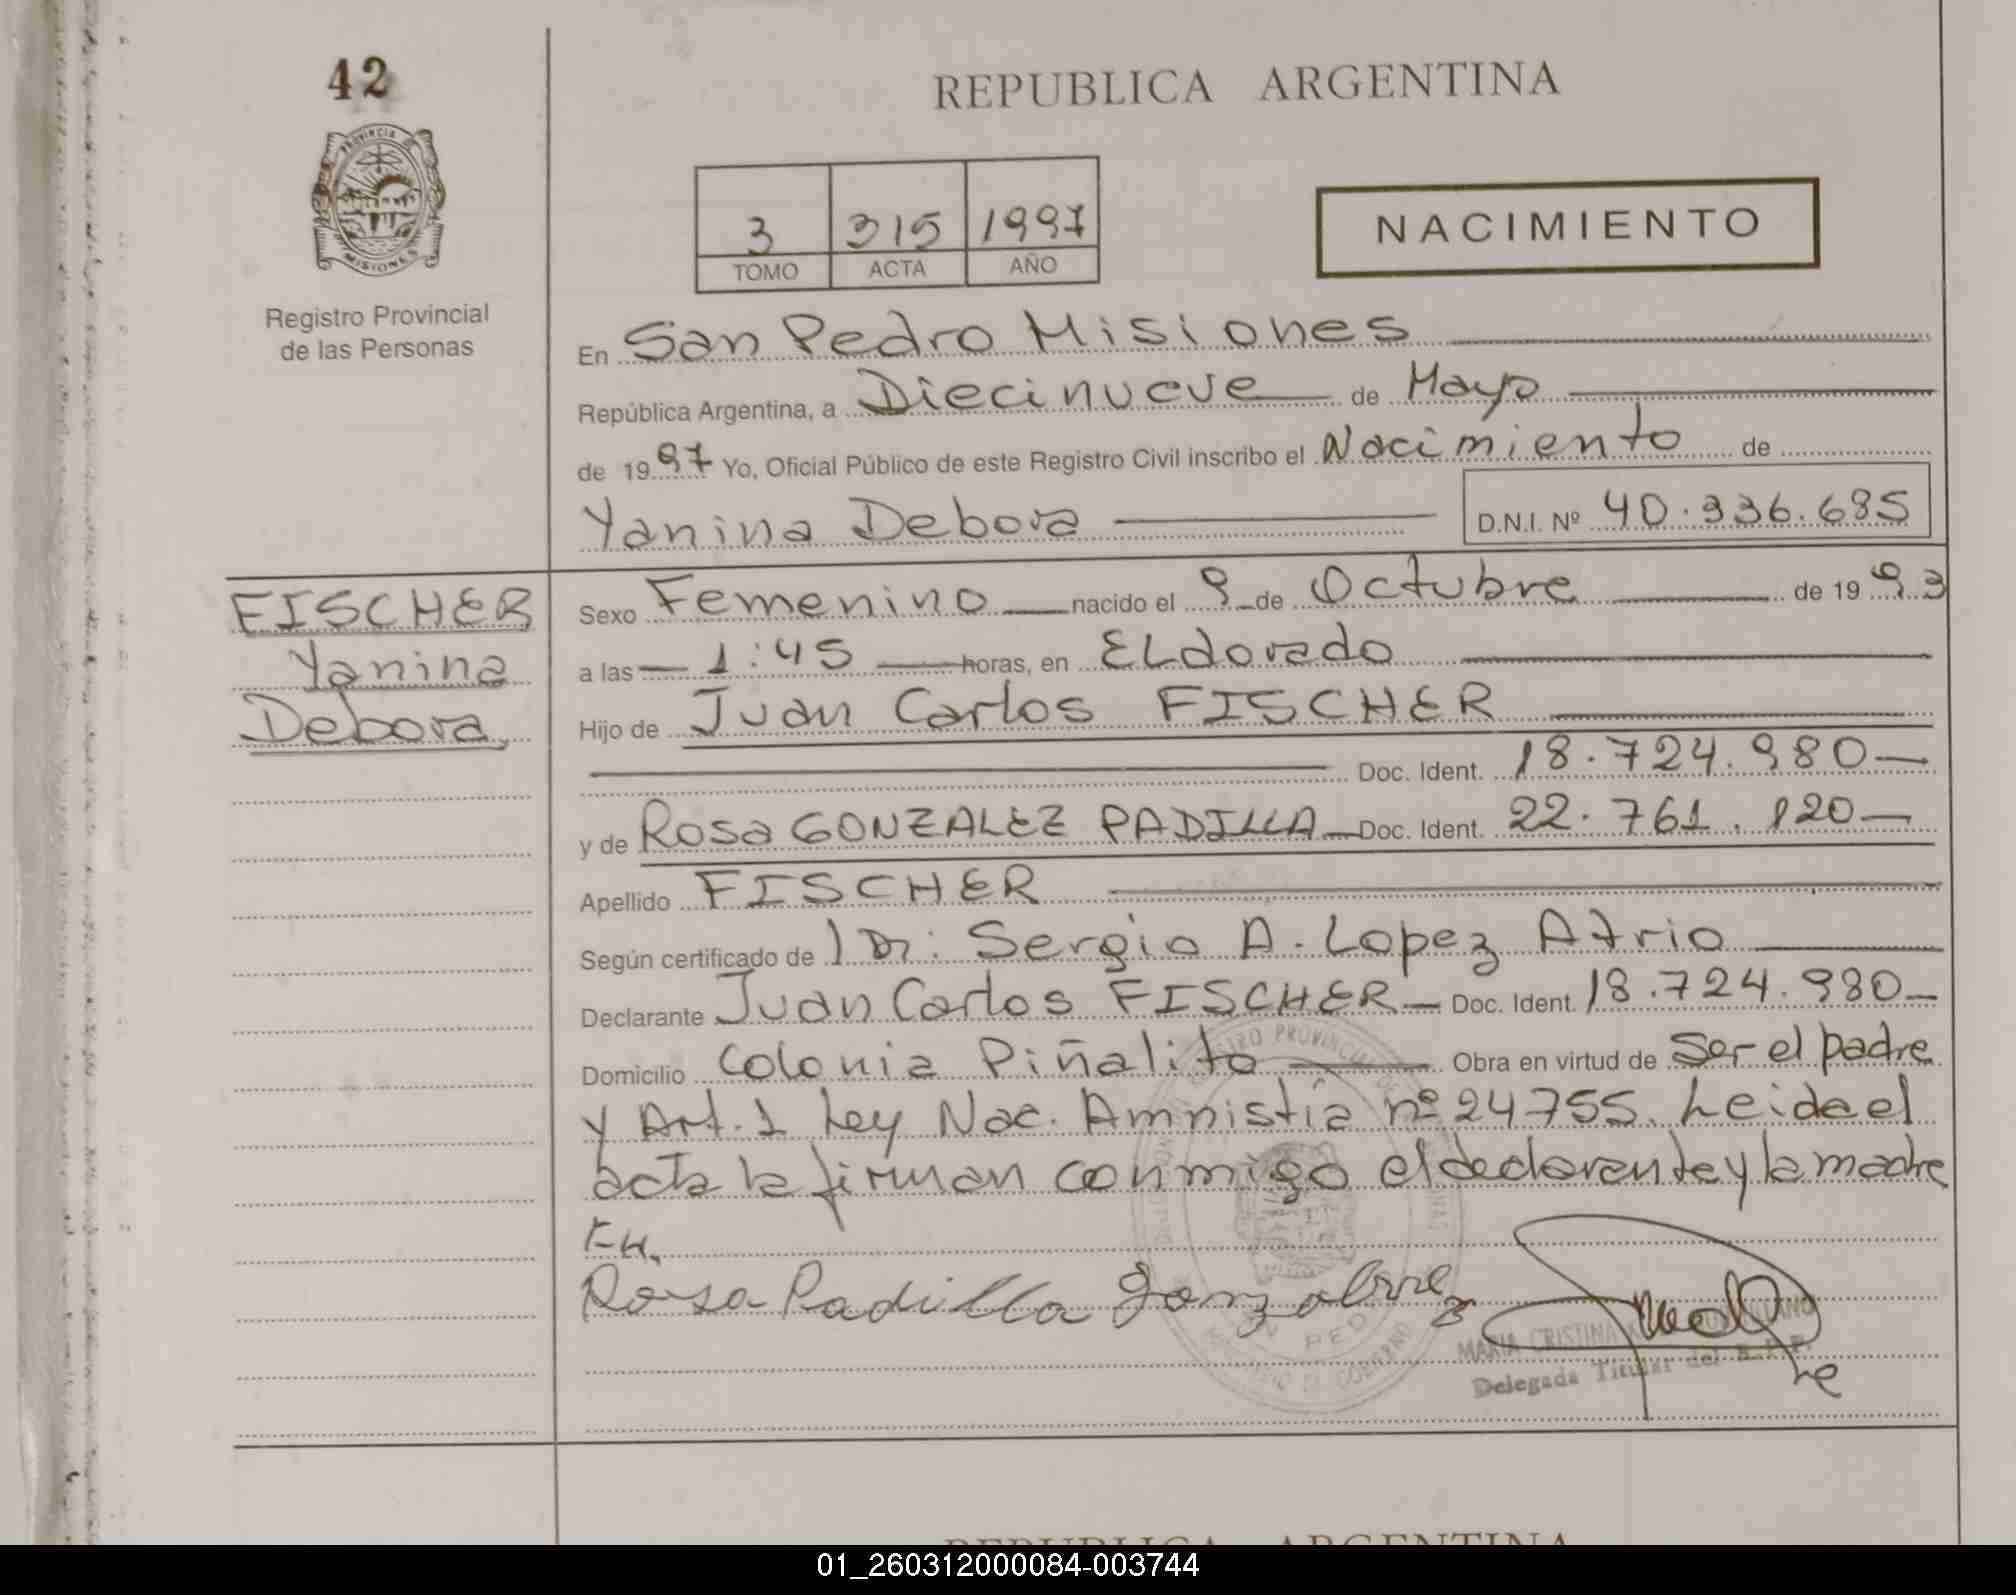 42
PROVINCIA
MISIONES
Registro Provincial
de las Personas
REPUBLICA ARGENTINA
3 315 1997
TOMO ACTA AÑO
NACIMIENTO
En San Pedro Misiones
República Argentina, a Diecinueve de Mayo
de 1997 Yo, Oficial Público de este Registro Civil inscribo el Nacimiento de
Yanina Debora D.N.I. Nº 40.336.685
FISCHER
Yanina
Debora,
Sexo Femenino nacido el 9 de Octubre de 1993
a las 1:45 horas, en ELdorado
Hijo de Juan Carlos FISCHER
Doc. Ident. 18.724.980
y de Rosa GONZALEZ PADILLA Doc. Ident. 22.761.120
Apellido FISCHER
Según certificado de 1 Dr: Sergio A. Lopez Atrio
Declarante Juan Carlos FISCHER Doc. Ident. 18.724.980
Domicilio Colonia Piñalito Obra en virtud de Ser el padre
y Art. 1 Ley Nac. Amnistía nº 24755. Leida el
acta la firman conmigo el declarante y la madre
Rosa Padilla Gonzalez
MARIA CRISTINA
Delegada Titular del R.P.P.
REPUBLICA ARGENTINA
01_260312000084-003744